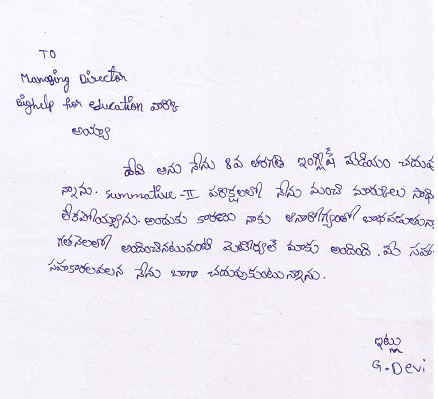 TO
Managing Director
Bighelp for education వారికి
అయ్యా
దేవి అను నేను 8వ తరగతి ఇంగ్లిష్ మీడియం చదువు
న్నాను. Summative-II పరీక్షలలో నేను మంచి మార్కులు సాధిం
లేకపోయ్యాను. అందుకు కారణం నాకు అనారోగ్యంతో బాధపడుతున్నా
గతనెలలో అందించినటువంటి మెటీరియల్ మాకు అందింది. మీ సహా
సహకారాలవలన నేను బాగా చదువుకుంటున్నాను.
ఇట్లు
G-Devi